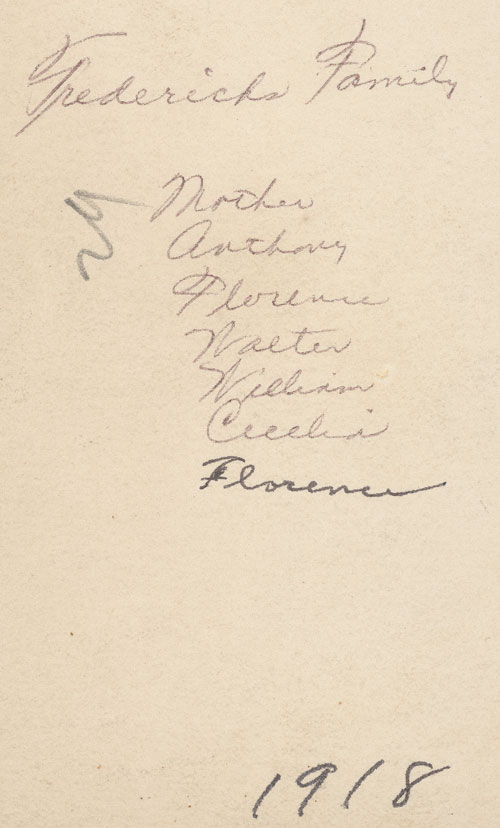 Fredericks Family
Mother
Anthony
Florence
Walter
William
Cecelia
Florence
1918